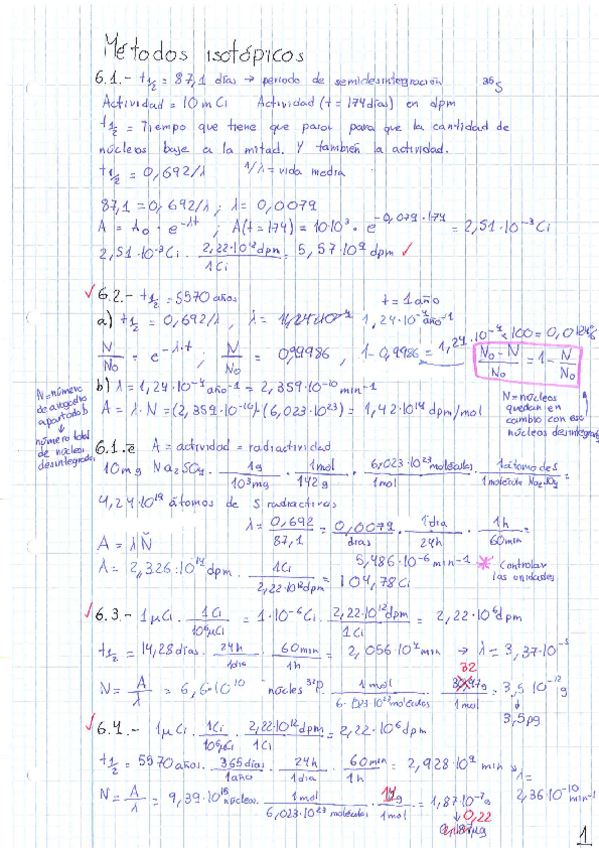 Métodos isotópicos
6.1.- t½ = 87,1 días → periodo de semidesintegración ³⁵S
Actividad = 10 mCi Actividad (t = 174 días) en dpm
t½ = Tiempo que tiene que pasar para que la cantidad de
núcleos baje a la mitad. Y también la actividad.
t½ = 0,692/λ 1/λ = vida media
87,1 = 0,692/λ ; λ = 0,0079
A = A₀ · e^-λt ; A(t=174) = 10·10³ · e^-0,079·174 = 2,51·10⁻³ Ci
2,51·10⁻³ Ci · 2,22·10¹² dpm / 1 Ci = 5,57·10⁹ dpm ✓
✓ 6.2.- t½ = 5570 años t = 1 año
a) t½ = 0,692/λ , λ = 1,24·10⁻⁴ año⁻¹ 1,24·10⁻⁴ · 100 = 0,0124%
N/N₀ = e^-λ·t ; N/N₀ = 0,99986 , 1 - 0,9986 = N₀ - N / N₀ = 1 - N/N₀
b) λ = 1,24·10⁻⁴ año⁻¹ = 2,359·10⁻¹⁰ min⁻¹
A = λ·N = (2,359·10⁻¹⁰)·(6,023·10²³) = 1,42·10¹⁴ dpm/mol
N = número
de avogadro
apartado b
↓
número total
de núcleos
desintegrados
N = núcleos
quedan en
cambio con eso
núcleos desintegrados
6.1.e A = actividad = radiactividad
10 mg Na₂SO₄ · 1g / 10³mg · 1mol / 142g · 6,023·10²³ moléculas / 1mol · 1 átomo de S / 1 molécula Na₂SO₄ =
4,24·10¹⁹ átomos de S radiactivos
λ = 0,692 / 87,1 = 0,0079 / días · 1día / 24h · 1h / 60min =
A = λÑ 5,486·10⁻⁶ min⁻¹ * Controlar
las unidades
A = 2,326·10¹⁴ dpm · 1Ci / 2,22·10¹² dpm = 104,78 Ci
✓ 6.3.- 1 μCi · 1Ci / 10⁶μCi = 1·10⁻⁶ Ci · 2,22·10¹² dpm / 1Ci = 2,22·10⁶ dpm
t½ = 14,28 días · 24h / 1día · 60min / 1h = 2,056·10⁴ min → λ = 3,37·10⁻⁵
N = A/λ = 6,6·10¹⁰ núcleos ³²P · 1mol / 6,023·10²³ moléculas · 32 g / 1mol = 3,5·10⁻¹² g
↓
3,5pg
✓ 6.4.- 1 μCi · 1Ci / 10⁶μCi · 2,22·10¹² dpm / 1Ci = 2,22·10⁶ dpm
t½ = 5570 años · 365 días / 1 año · 24h / 1 día · 60min / 1h = 2,928·10⁹ min → λ =
2,36·10⁻¹⁰ min⁻¹
N = A/λ = 9,39·10¹⁵ núcleos · 1mol / 6,023·10²³ moléculas · 14 g / 1mol = 1,87·10⁻⁷ g
↓ 0,22
1